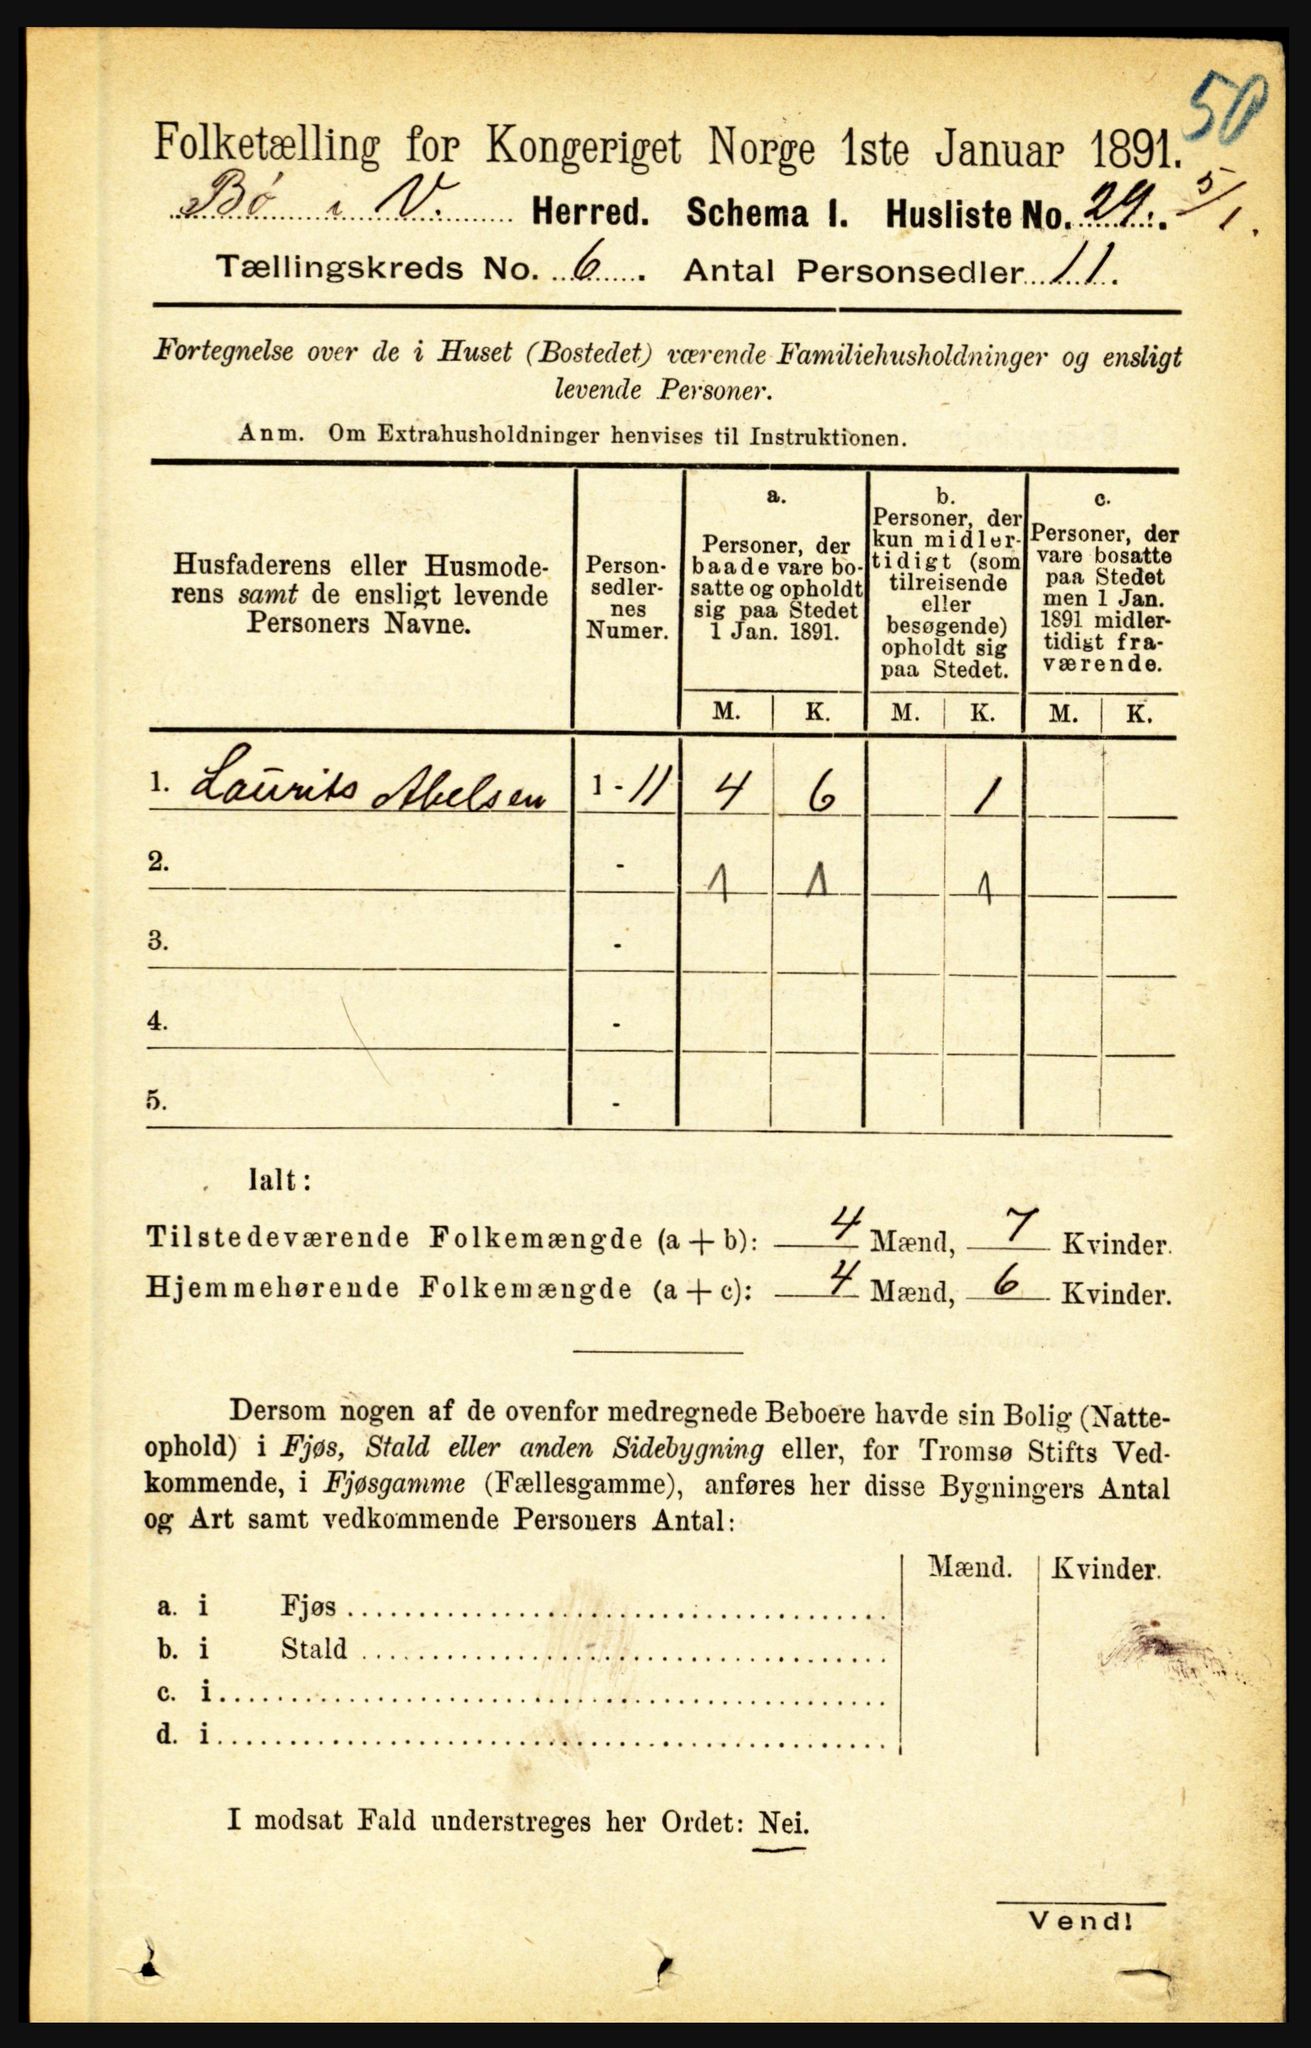 50
Folketælling for Kongeriget Norge 1ste Januar 1891.
5/1.
Bø i V. Herred. Schema I. Husliste No. 29.
Tællingskreds No. 6. Antal Personsedler 11.
Fortegnelse over de i Huset (Bostedet) værende Familiehusholdninger og ensligt
levende Personer.
Anm. Om Extrahusholdninger henvises til Instruktionen.
Husfaderens eller Husmode-
rens samt de ensligt levende
Personers Navne.
Person-
sedler-
nes
Numer.
a.
Personer, der
baade vare bo-
satte og opholdt
sig paa Stedet
1 Jan. 1891.
b.
Personer, der
kun midler-
tidigt (som
tilreisende
eller
besøgende)
opholdt sig
paa Stedet.
c.
Personer, der
vare bosatte
paa Stedet
men 1 Jan.
1891 midler-
tidigt fra-
værende.
M. K. M. K. M. K.
1. Laurits Abelsen 1 - 11 4 6 1
2. - 1 1 1
3. -
4. -
5. -
Ialt:
Tilstedeværende Folkemængde (a + b): 4 Mænd, 7 Kvinder.
Hjemmehørende Folkemængde (a + c): 4 Mænd, 6 Kvinder.
Dersom nogen af de ovenfor medregnede Beboere havde sin Bolig (Natte-
ophold) i Fjøs, Stald eller anden Sidebygning eller, for Tromsø Stifts Ved-
kommende, i Fjøsgamme (Fællesgamme), anføres her disse Bygningers Antal
og Art samt vedkommende Personers Antal:
Mænd. Kvinder.
a. i Fjøs
b. i Stald
c. i
d. i
I modsat Fald understreges her Ordet: Nei.
Vend!